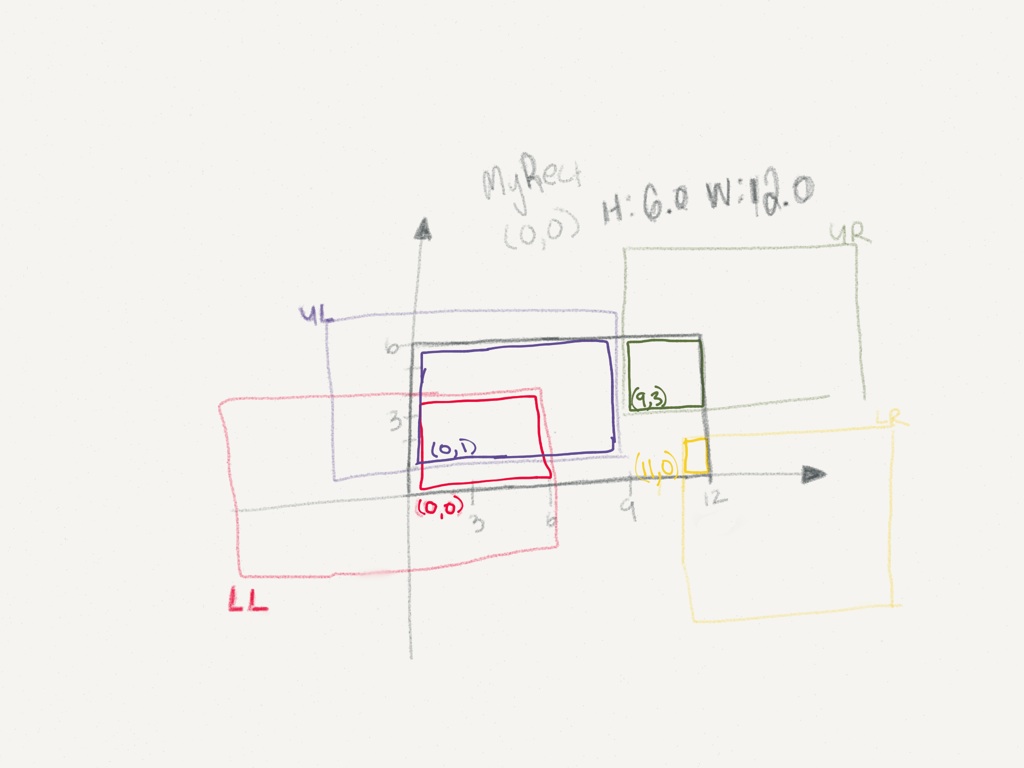 MyRect
(0,0)
H: 6.0 W: 12.0
UR
UL
6
3
(9,3)
(0,1)
LR
(11,0)
(0,0)
3
6
9
12
LL